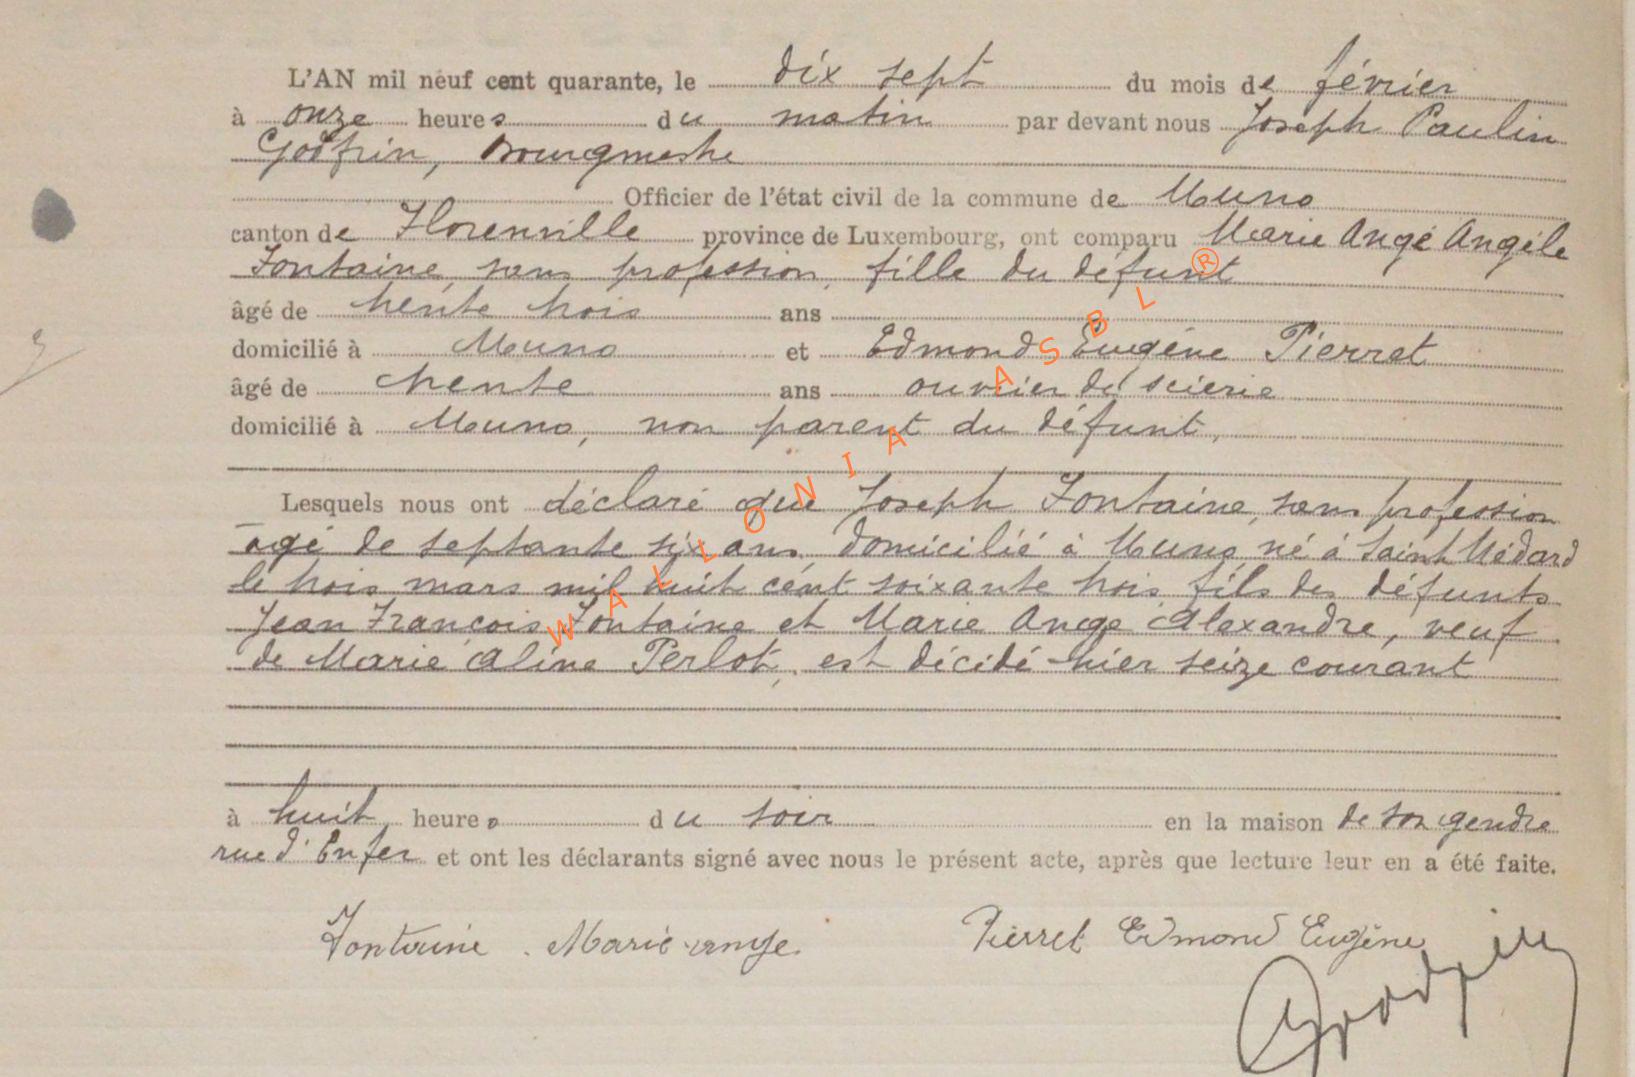 L'AN mil neuf cent quarante, le dix sept du mois de février
à onze heures du matin par devant nous Joseph Paulin
Godfrin, Bourgmestre
Officier de l'état civil de la commune de Muno
canton de Florenville province de Luxembourg, ont comparu Marie Ange Angèle
Fontaine, sans profession, fille du défunt
âgé de trente trois ans
domicilié à Muno et Edmond Eugène Pierret
âgé de trente ans ouvrier de scierie
domicilié à Muno, non parent du défunt,
Lesquels nous ont déclaré que Joseph Fontaine, sans profession
âgé de septante six ans, domicilié à Muno, né à Saint Médard
le trois mars mil huit cent soixante trois, fils des défunts
Jean François Fontaine et Marie Ange Alexandre, veuf
de Marie Aline Perlot, est décidé hier seize courant
à huit heures du soir en la maison de son gendre
rue d'Enfer et ont les déclarants signé avec nous le présent acte, après que lecture leur en a été faite.
Fontaine Marie-ange. Pierret Edmond Eugène
Godfrin
WALLONIA ASBL ®